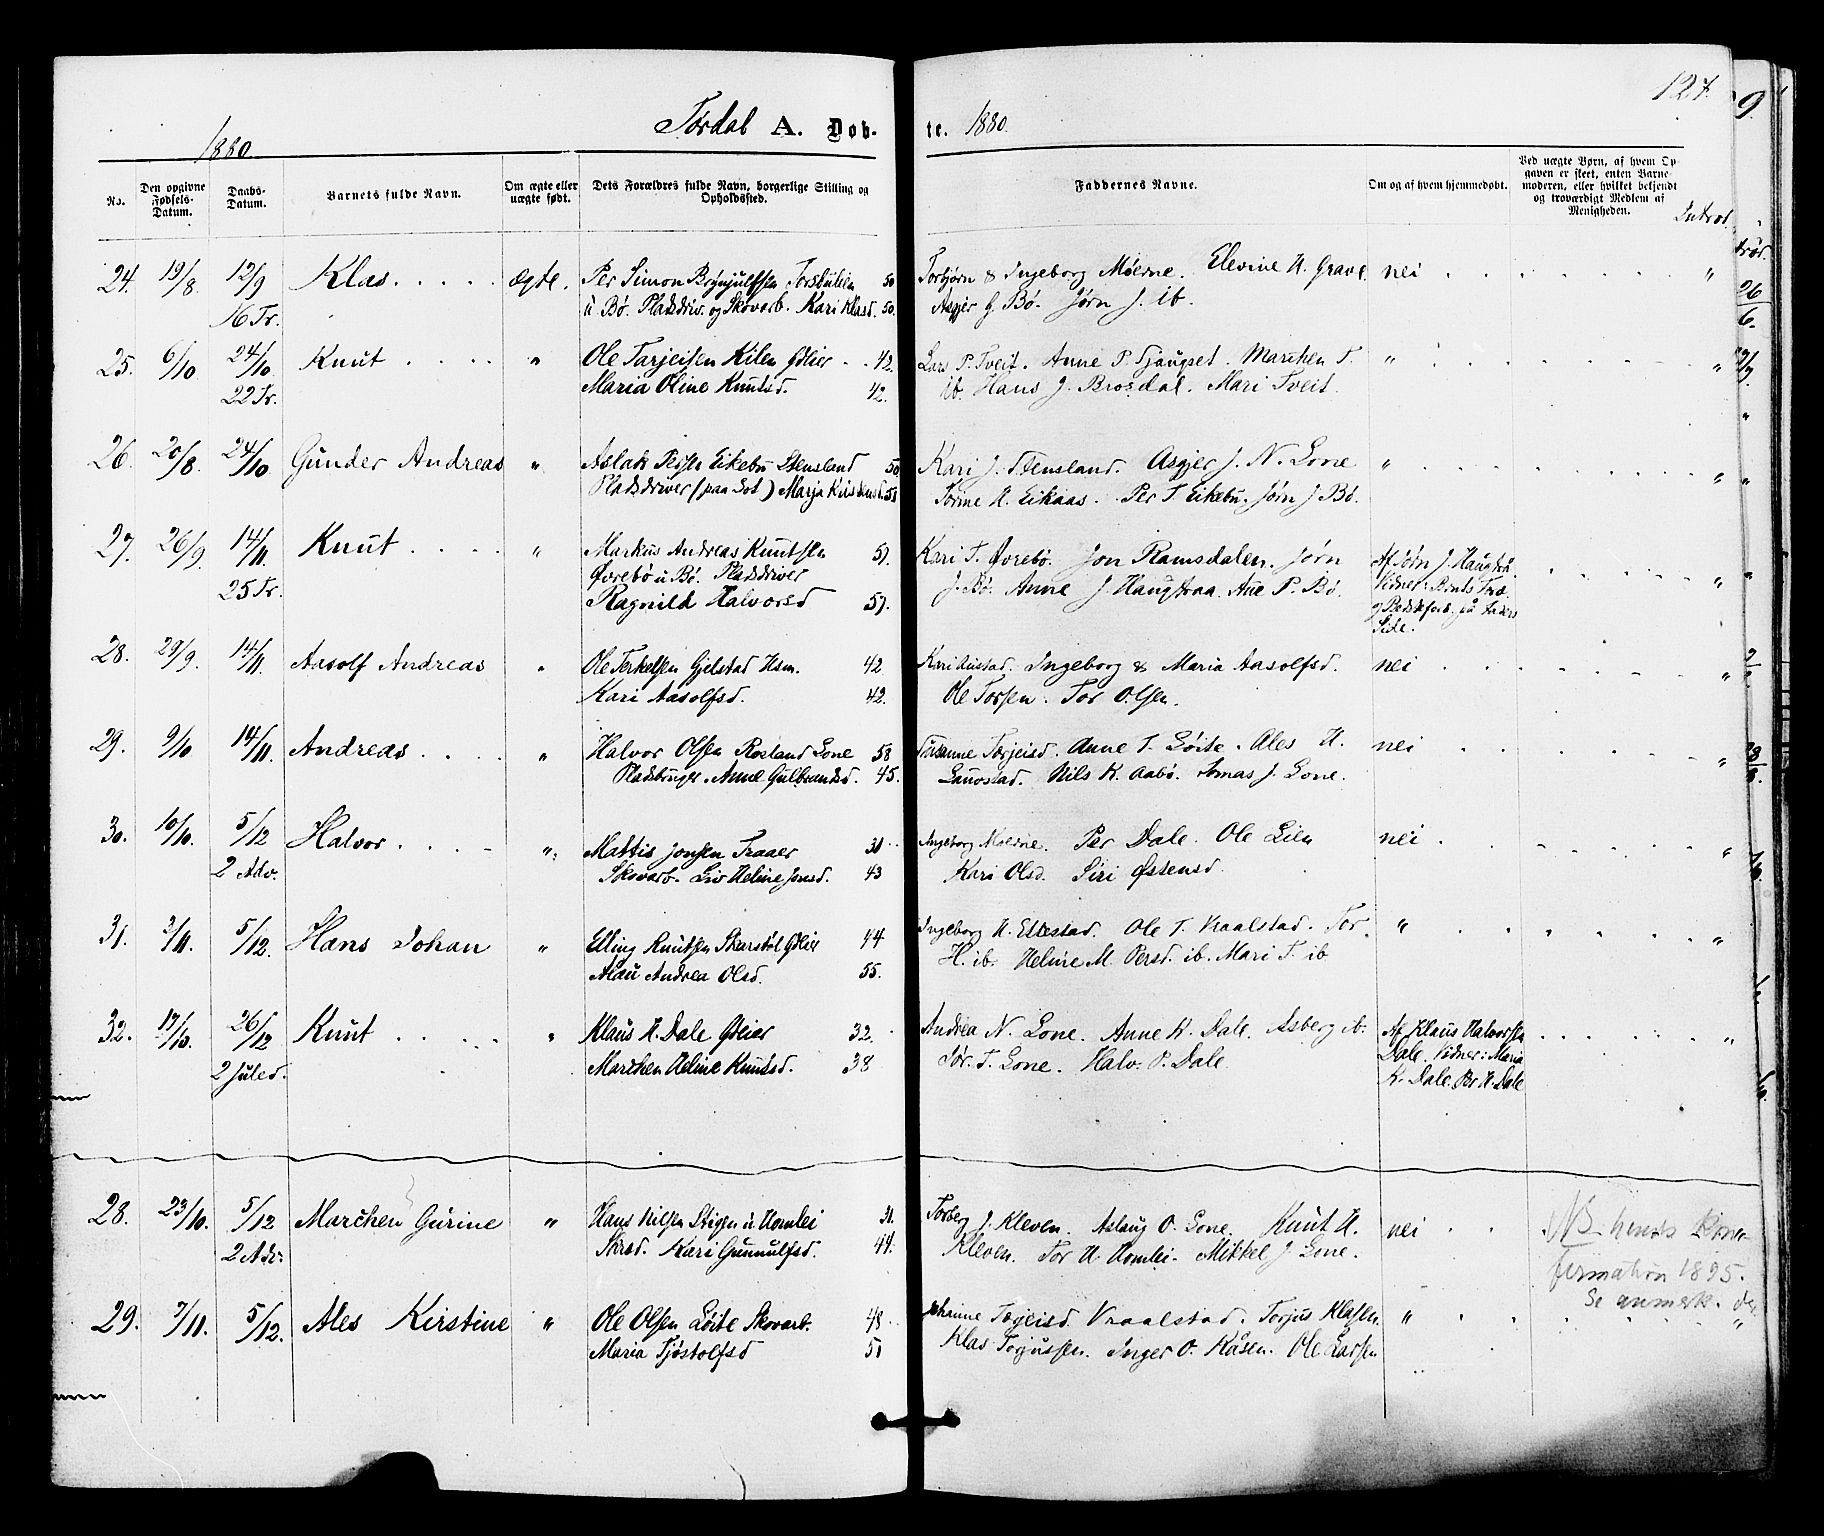 Tørdal A. Døb-
te. 1880.
1880.
127.
No.
Den opgivne Fødsels-Datum.
Daabs-Datum.
Barnets fulde Navn.
Om ægte eller uægte født.
Dets Forældres fulde Navn, borgerlige Stilling og Opholdssted.
Faddernes Navne.
Om og af hvem hjemmedøbt.
Ved uægte Børn, af hvem Op-
gaven er skeet, enten Barne-
moderen, eller hvilket bekjendt
og troværdigt Medlem af
Menigheden.
Introd.
24. 19/8 12/9 Klas . . . . . ægte. Per Simon Brynjulfsen Torsbulien 50
16 Tr. u Bø. Pladsdriv. og Skovarb. Kari Klasd. 50.
Torbjørn & Ingeborg Moerne. Elevine H. Grave nei . . . "
Asgjer G. Bø. Jørn J. ib.
25. 6/10 24/10 Knut . . . . " Ole Tarjeisen Kilen Gdeier . . 42.
22 Tr. Maria Oline Knutsd. 42.
Lars P. Tveit. Anne P. Tjaugset. Marchen T. " "
ib. Hans J. Brosdal. Mari Tveit.
26. 20/8 24/10 Gunder Andreas " Aslak Persen Eikebu Stensland 50
Pladsdriver (paa Sot) Marja Kristensd. 51
Kari J. Stensland. Asgjer J. N. Lone " "
Torine H. Eikaas. Per T. Eikebu. Jørn J Bø.
27. 26/9 14/11 Knut . . . . " Markus Andreas Knutsen 57.
25 Tr. Øvrebø u Bø. Pladsdriver
Ragnild Halvorsd 57.
Kari T. Øvrebø. Jon Ramsdalen. Jørn
J. Bø. Anne J. Haugtraa. Ane P. Bø.
Af Jørn J. Haugtrå.
Vidner: Bernts
Side.
28. 29/9 14/11. Aasolf Andreas " Ole Terkelsen Gjelstad Hsm. 42.
Kari Aasolfsd. 42.
Ingeborg & Maria Aasolfsd. nei . . . "
Ole Torsen. Tor Olsen.
29. 9/10 14/11. Andreas . . . . " Halvor Olsen Rosland Lone 58
Pladsbruger. Anne Gulbrandsd. 45.
Susanne Torjeisd. Anne T. Løite. Ales H. nei . . . "
Lauvstad. Nils K. Aabø. Tomas J. Lone.
30. 10/10 5/12 Halvor . . . - ". Mattis Jonsen Traaer 31
2 Adv. Skovarb. Liv Helene Jonsd. 43
Ingeborg Moerne. Per Dale. Ole Lien nei . . . "
Kari Olsd. Siri Østensd.
31. 3/11. 5/12. Hans Johan " Elling Knutsen Skarstøl Gdeier 44
Andrea Olsd. 55.
Ingeborg H. Ettestad. Ole T. Vraalstad. Tor " "
H. ib. Helene M. Persd. ib. Mari T. ib
32. 17/10. 26/12 Knut . . . . . " Klaus H. Dale Gdeier 32.
2 Juled. Marthen Heline Knutsd. 38
Andrea N. Lone. Anne K. Dale. Asberg ib.
Tor. T. Lone. Halv. P. Dale.
Af Klaus Halvorsen
Dale. Vidner: Maria
K. Dale. Br. H. Dale
28. 23/10. 5/12 Marchen Gurine " Hans Nilsen Stigen u Homlei 31.
2 Adv. Kari Gunnulfsd. 44.
Torberg J. Kleven. Aslaug O. Lone. Knut H. nei . .
Kleven. Tor H. Homlei. Mikkel J Lone.
NB. hendes Kon-
firmation 1895.
Se anmerk.
29. 7/11. 5/12. Ales Kirstine " Ole Olsen Løite Skovarb. 48
Maria Tjøstolfsd 51
Johanne Torjeisd. Vraalstad. Torjus Klasen " "
Klas Torjussen. Inger O. Kåsen. Ole Larsen